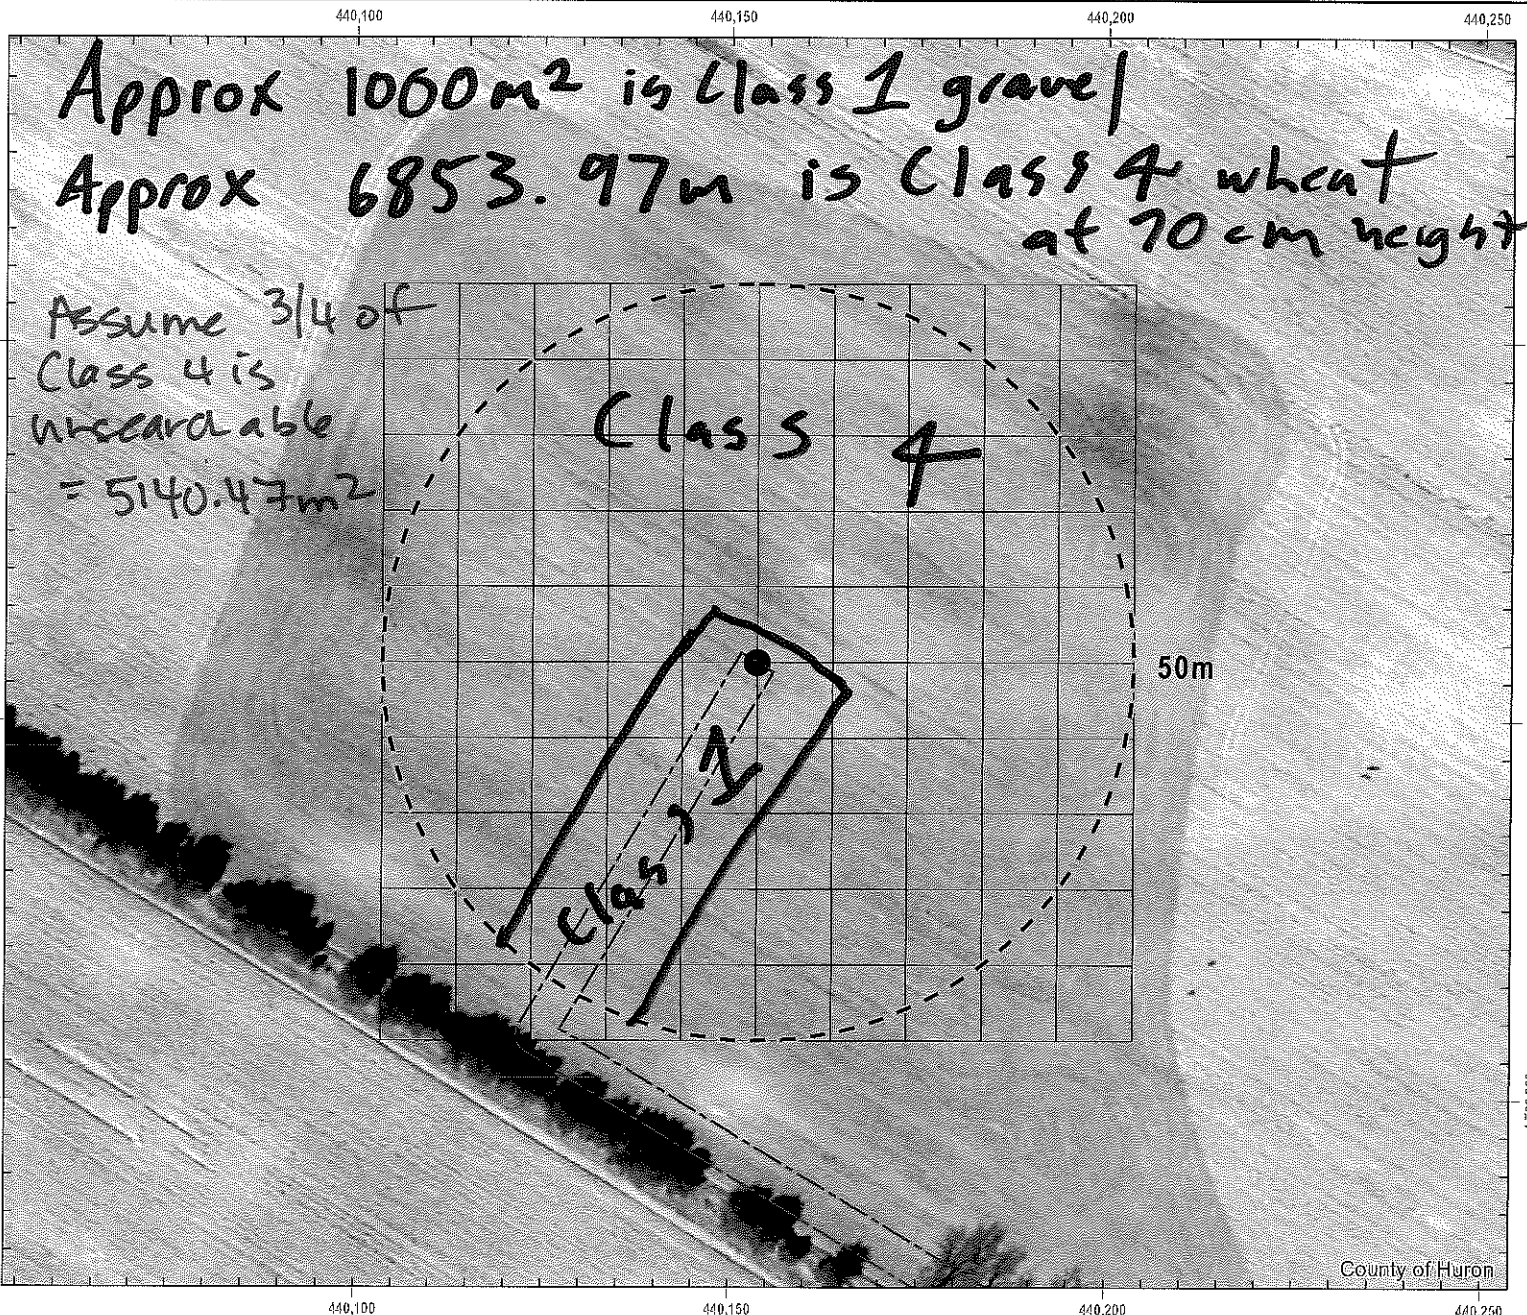 440,100 440,150 440,200 440,250
Approx 1000m² is Class 1 gravel
Approx 6853.97m is Class 4 wheat
at 70cm height
Assume 3/4 of
Class 4 is
unsearchable
= 5140.47m²
Class 4
50m
Class 1
County of Huron
440,100 440,150 440,200 440,250